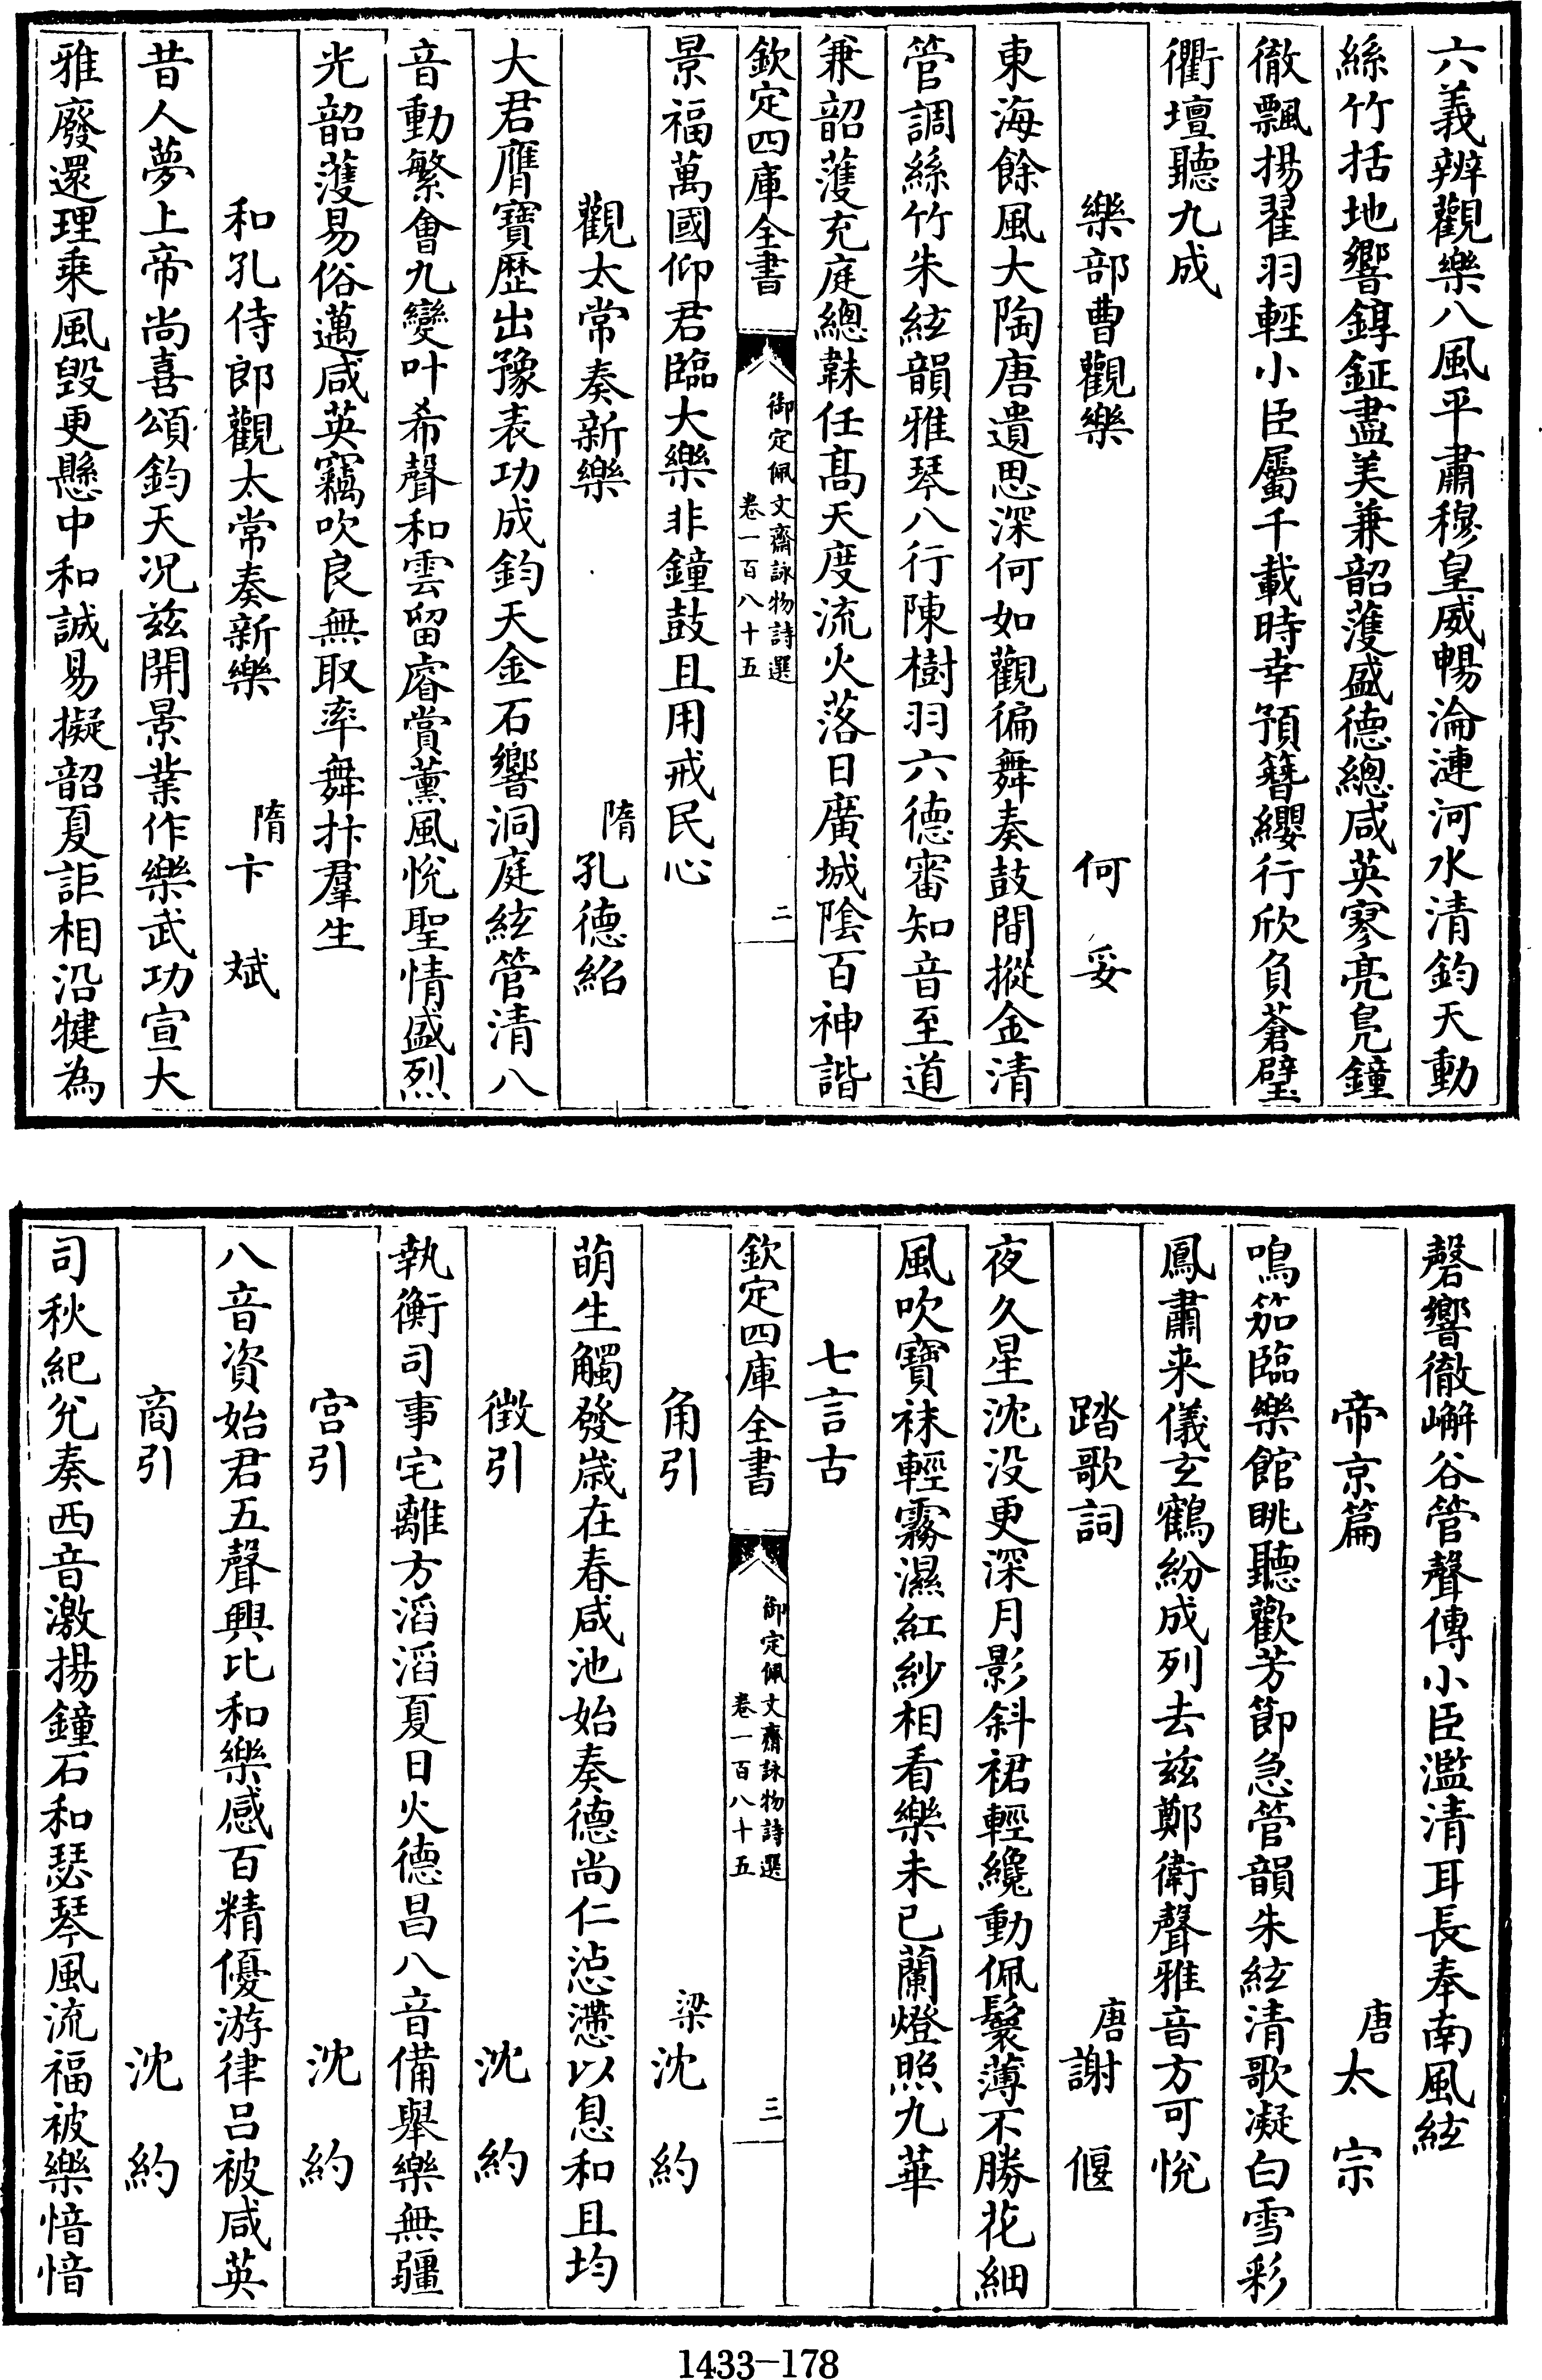 六義辨觀樂八風平肅穆皇威暢淪漣河水清鈞天動
絲竹括地響錞鉦盡美兼韶頀盛德總咸英寥亮鳧鐘
徹飄揚翟羽輕小臣屬千載時幸預簪纓行欣負蒼璧
衢壇聽九成
樂部曹觀樂 何妥
東海餘風大陶唐遺思深何如觀徧舞奏鼓間摐金清
管調絲竹朱絃韻雅琴八行陳樹羽六德審知音至道
兼韶頀充庭總韎任髙天度流火落日廣城陰百神諧
欽定四庫全書
御定佩文齋詠物詩選
卷一百八十五
二
景福萬國仰君臨大樂非鐘鼓且用戒民心
觀太常奏新樂 隋孔德紹
大君膺寶歴出豫表功成鈞天金石響洞庭絃管清八
音動繁會九變叶希聲和雲留睿賞薰風悅聖情盛烈
光韶頀易俗邁咸英竊吹良無取率舞抃羣生
和孔侍郎觀太常奏新樂 隋卞斌
昔人夢上帝尚喜頌鈞天况兹開景業作樂武功宣大
雅廢還理乘風毁更懸中和誠易擬韶夏詎相沿揵為
磬響徹嶰谷管聲傳小臣濫清耳長奉南風絃
帝京篇 唐太宗
鳴笳臨樂館眺聽歡芳節急管韻朱絃清歌凝白雪彩
鳳肅来儀玄鶴紛成列去兹鄭衛聲雅音方可悅
踏歌詞 唐謝偃
夜久星沈沒更深月影斜裙輕纔動佩鬟薄不勝花細
風吹寶袜輕霧濕紅紗相看樂未已蘭燈照九華
七言古
欽定四庫全書
御定佩文齋詠物詩選
卷一百八十五
三
角引 梁沈約
萌生觸發歲在春咸池始奏德尚仁惉懘以息和且均
徵引 沈約
執衡司事宅離方滔滔夏日火德昌八音備舉樂無疆
宫引 沈約
八音資始君五聲興比和樂感百精優游律吕被咸英
商引 沈約
司秋紀兊奏西音激揚鐘石和瑟琴風流福被樂愔愔
1433-178